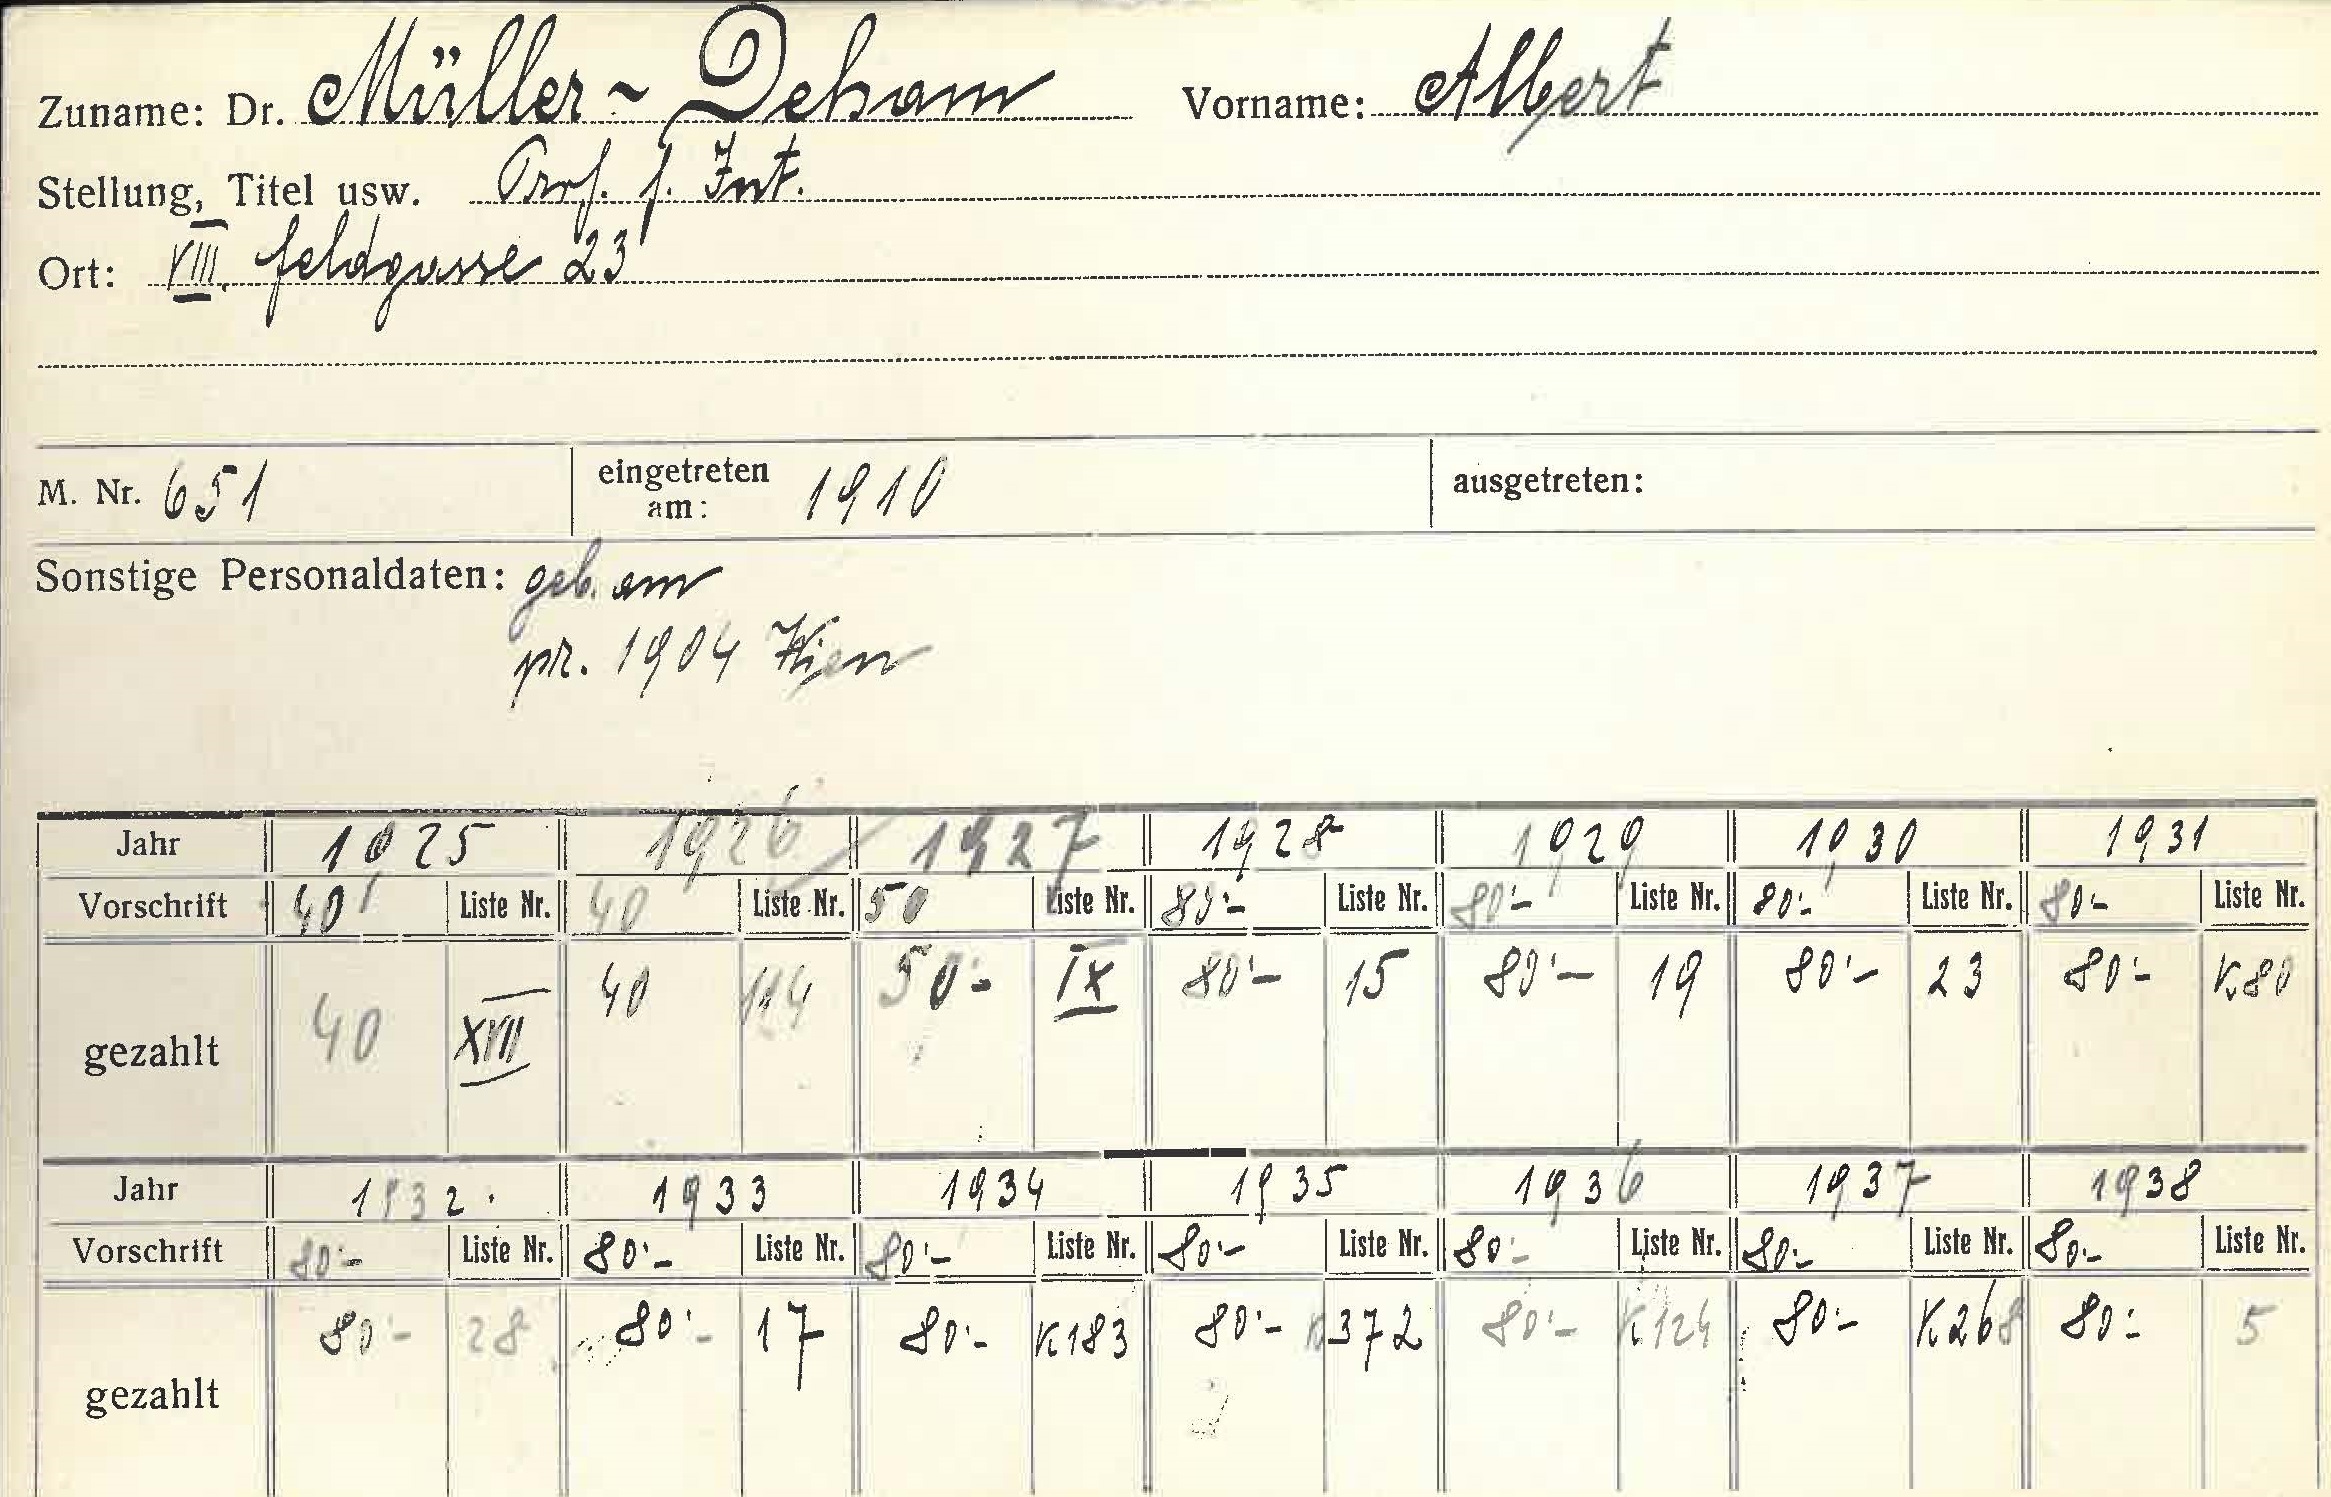 Zuname: Dr. Müller-Deham Vorname: Albert
Stellung, Titel usw. Prof. f. Int.
Ort: VIII. Feldgasse 23
M. Nr. 651 eingetreten am: 1910 ausgetreten:
Sonstige Personaldaten: geb. am
pr. 1904 Wien
Jahr 1925 1926 1927 1928 1929 1930 1931
Vorschrift 40 Liste Nr. 40 Liste Nr. 50 Liste Nr. 80'- Liste Nr. 80'- Liste Nr. 80'- Liste Nr. 80'- Liste Nr.
gezahlt 40 XVII 40 114 50'- IX 80'- 15 80'- 19 80'- 23 80'- K80
Jahr 1932. 1933 1934 1935 1936 1937 1938
Vorschrift 80'- Liste Nr. 80'- Liste Nr. 80'- Liste Nr. 80'- Liste Nr. 80'- Liste Nr. 80'- Liste Nr. 80'- Liste Nr.
gezahlt 80'- 28 80'- 17 80'- K183 80'- K372 80'- K124 80'- K268 80'- 5